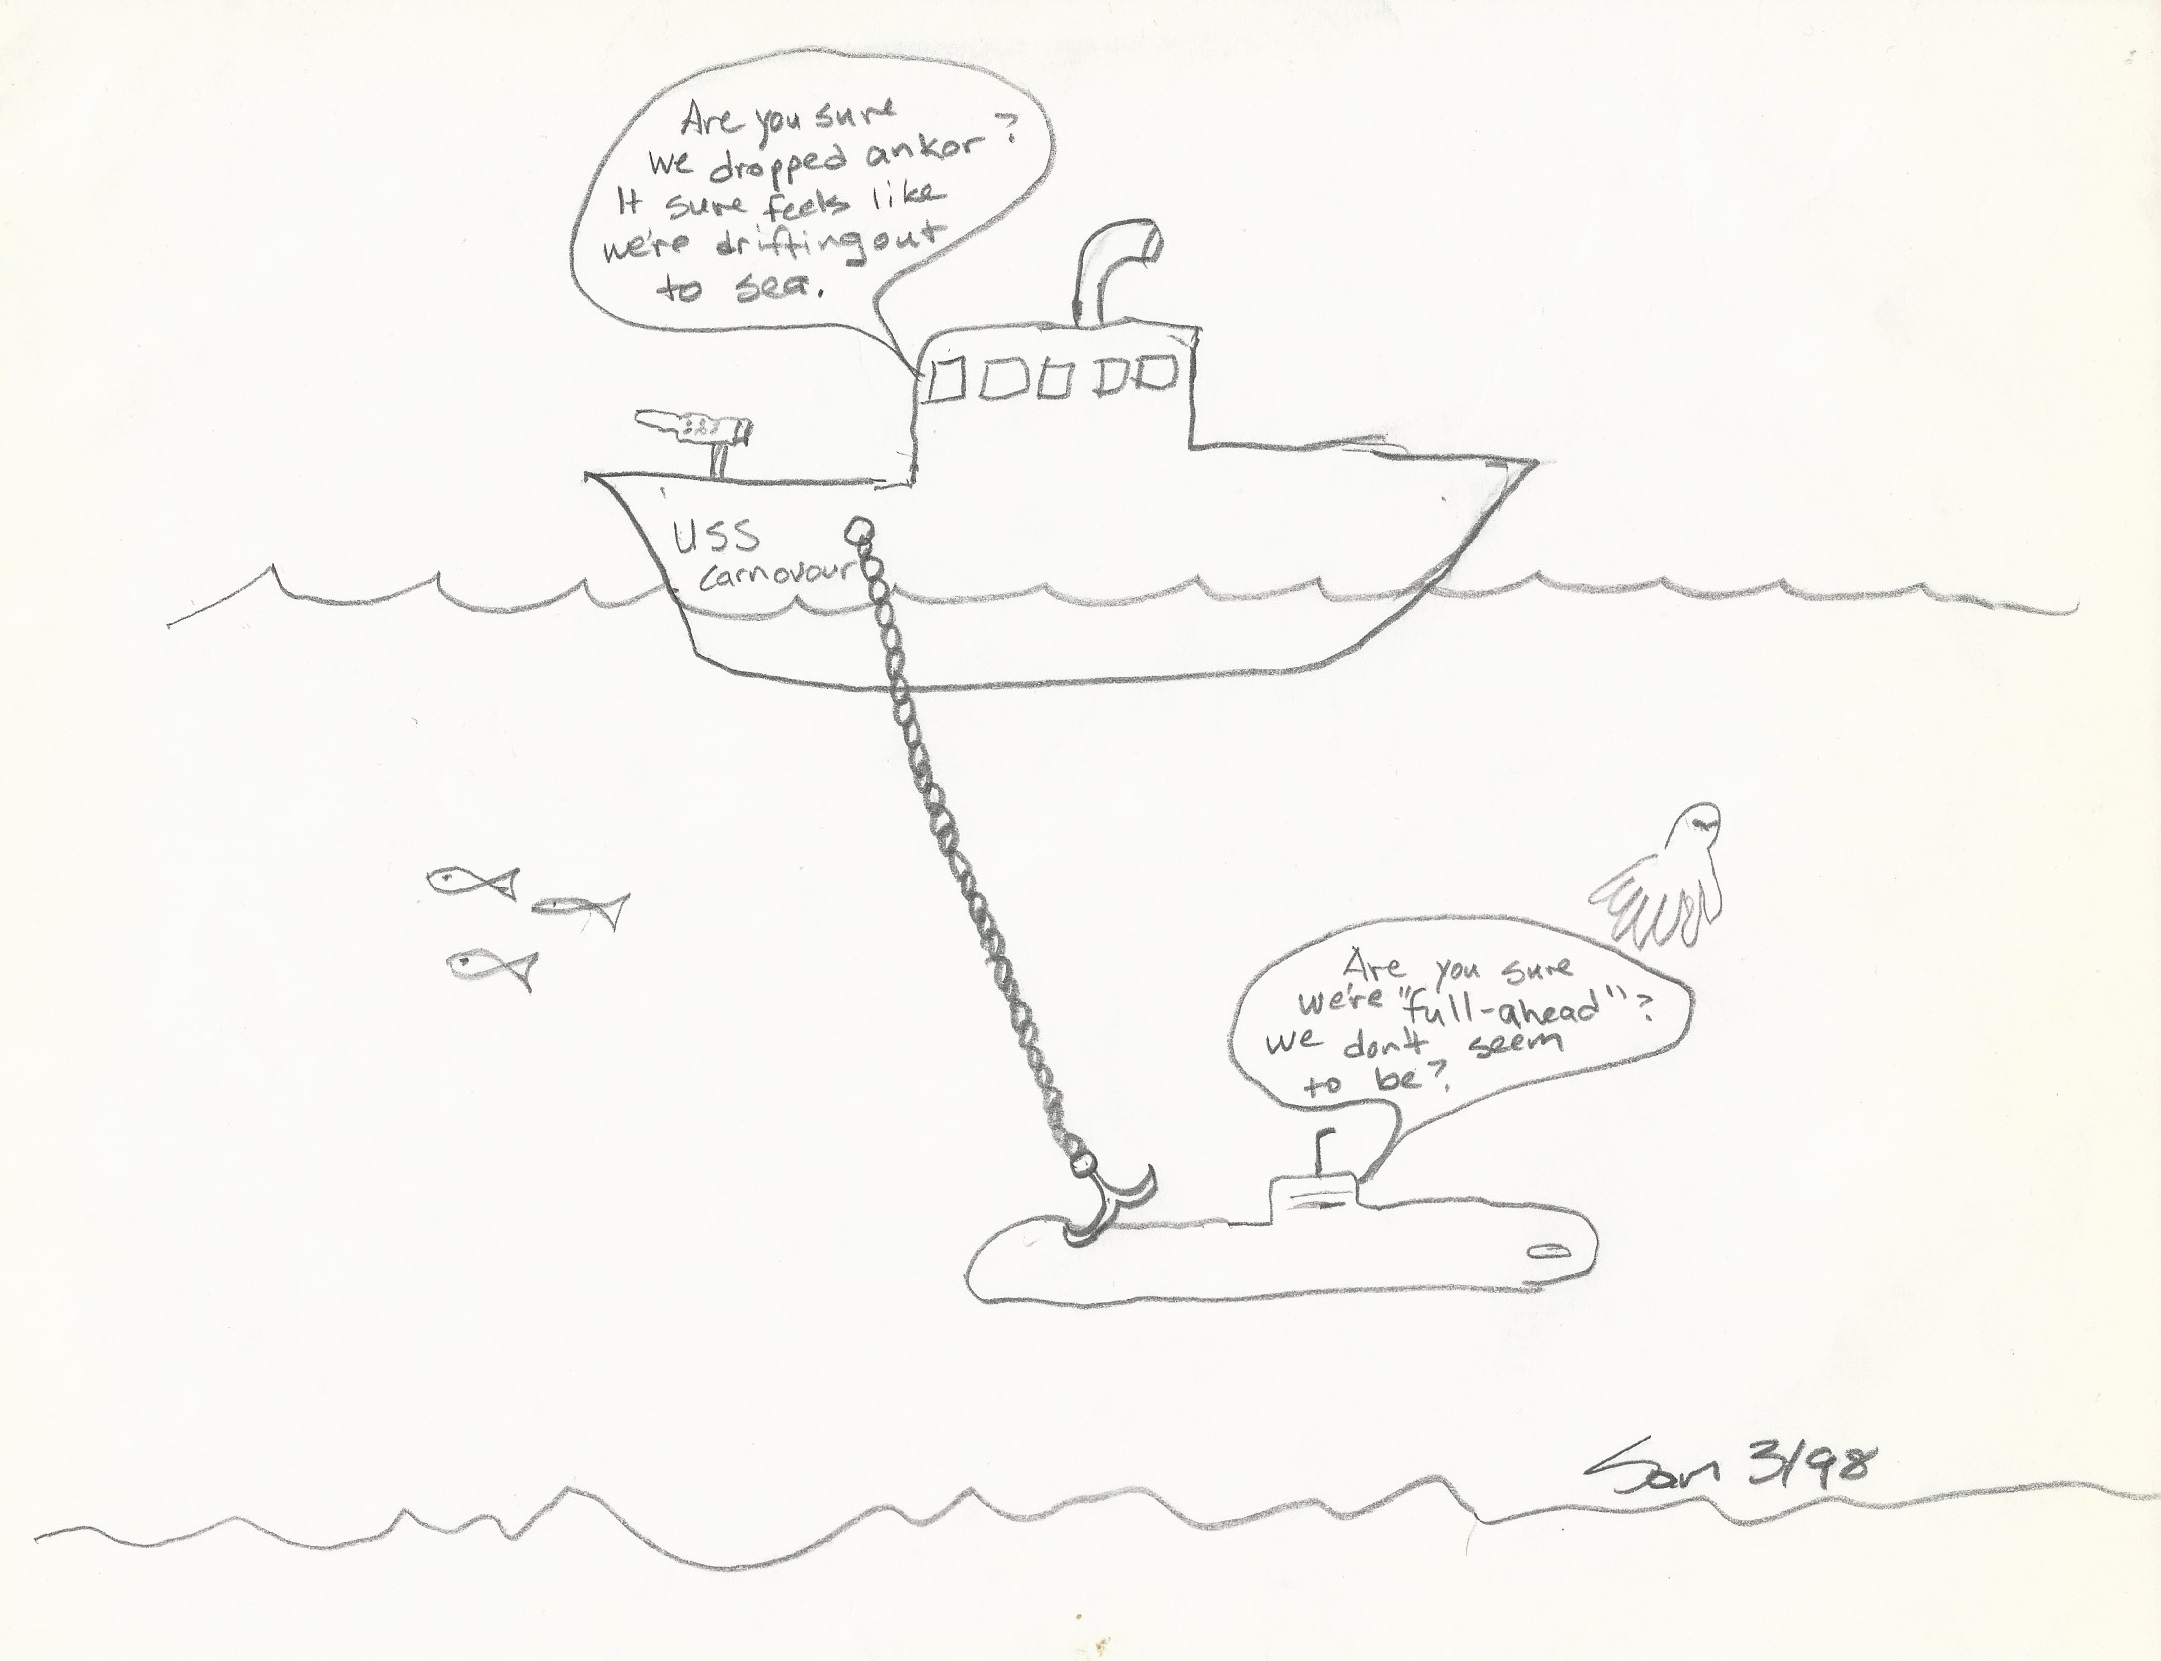 Are you sure
we dropped ankor?
It sure feels like
we're drifting out
to sea.
USS
Carnovour
Are you sure
we're "full-ahead"?
we don't seem
to be?
Sam 3/98